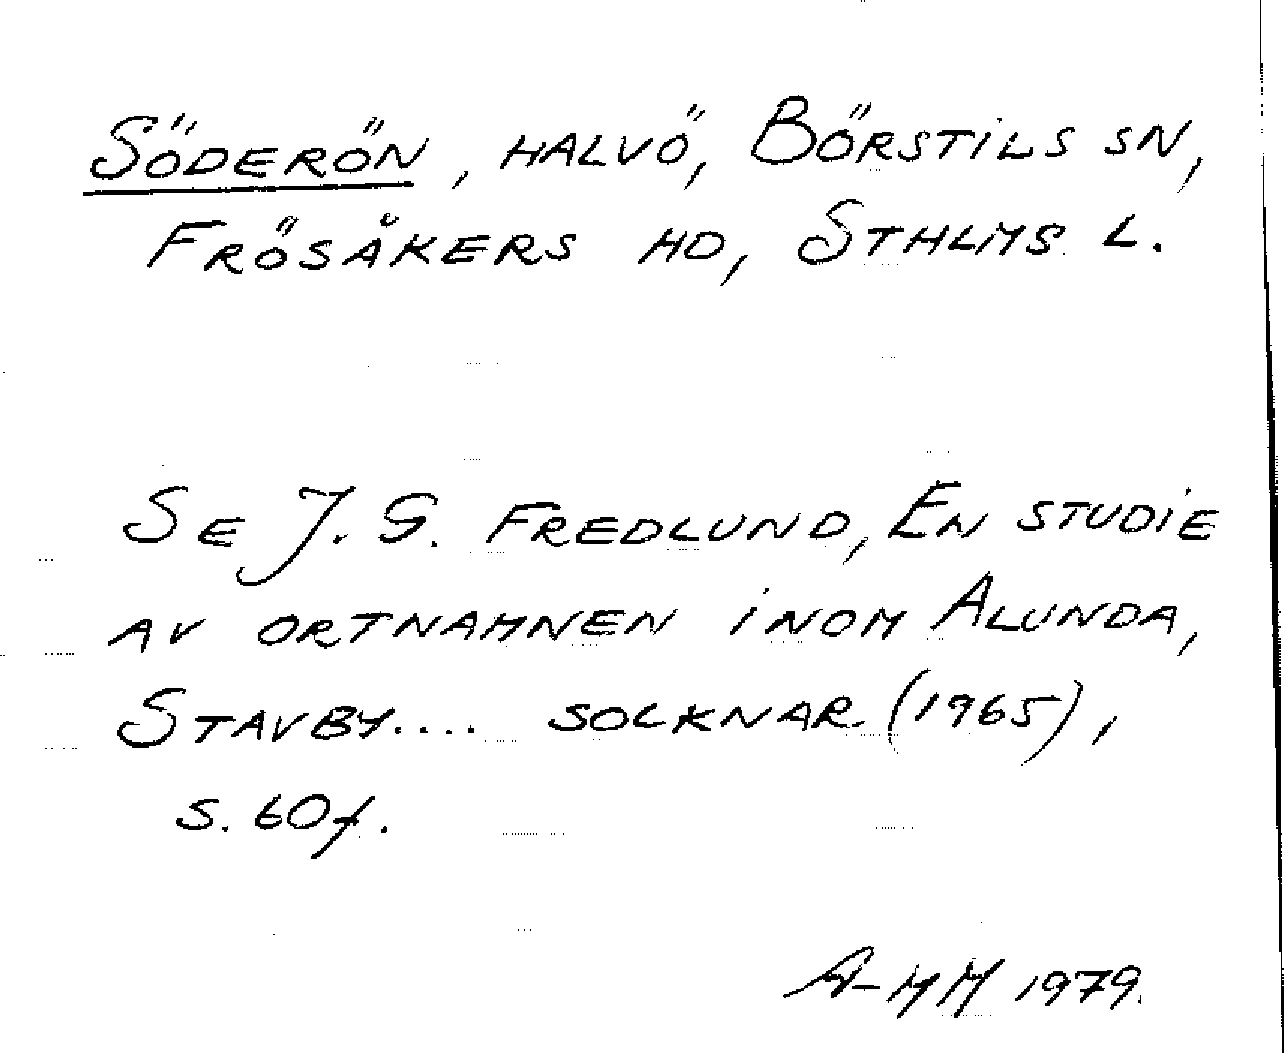 Söderön, halvö, Börstils sn,
Frösåkers hd, Sthlms l.
Se J. G. Fredlund, En studie
av ortnamnen inom Alunda,
Stavby.... socknar (1965),
s. 60f.
A-MM 1979.